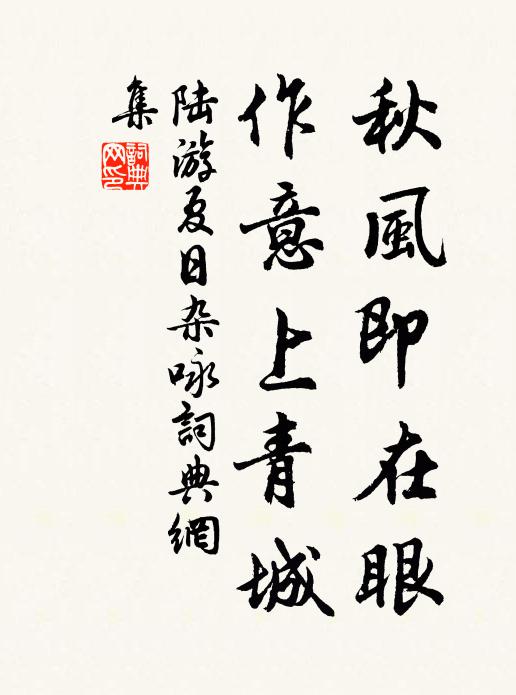 秋風即在眼
作意上青城
陆游夏日杂咏詞典網
集
詞典网印